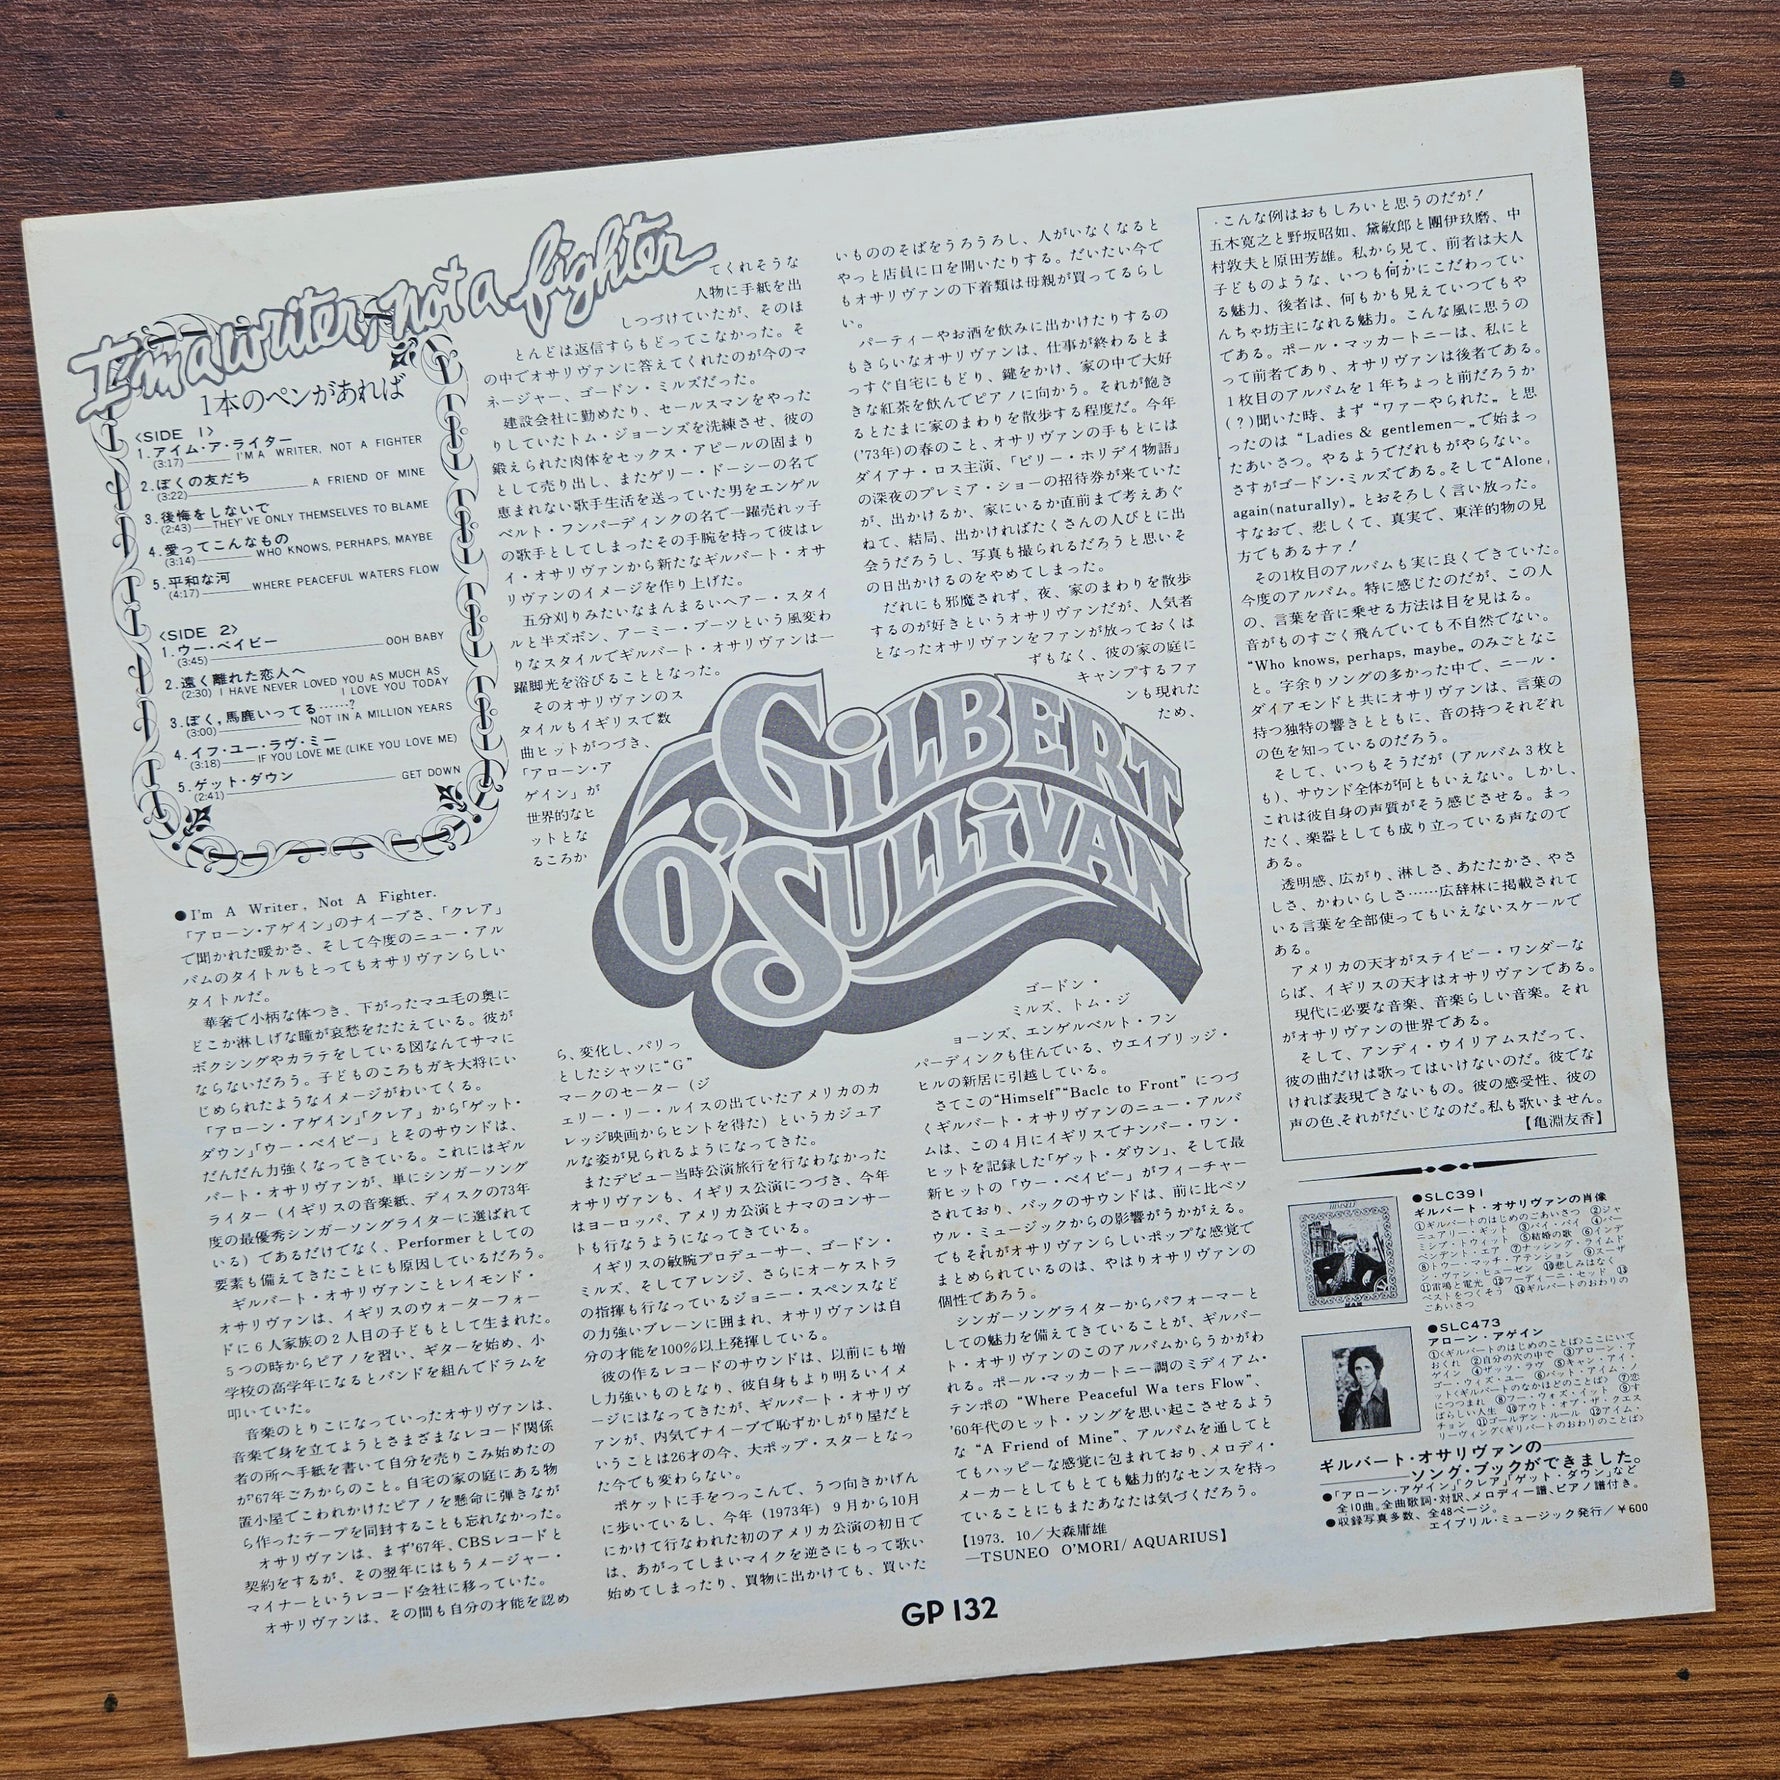 I'm a writer, not a fighter
1本のペンがあれば
<SIDE 1>
1.アイム・ア・ライター
(3:17) I'M A WRITER, NOT A FIGHTER
2.ぼくの友だち
(3:22) A FRIEND OF MINE
3.後悔をしないで
(2:43) THEY'VE ONLY THEMSELVES TO BLAME
4.愛ってこんなもの
(3:14) WHO KNOWS, PERHAPS, MAYBE
5.平和な河
(4:17) WHERE PEACEFUL WATERS FLOW
<SIDE 2>
1.ウー・ベイビー
(3:45) OOH BABY
2.遠く離れた恋人へ
(2:30) I HAVE NEVER LOVED YOU AS MUCH AS
I LOVE YOU TODAY
3.ぼく,馬鹿いってる……?
(3:00) NOT IN A MILLION YEARS
4.イフ・ユー・ラヴ・ミー
(3:18) IF YOU LOVE ME (LIKE YOU LOVE ME)
5.ゲット・ダウン
(2:41) GET DOWN
●I'm A Writer, Not A Fighter.
「アローン・アゲイン」のナイーブさ、「クレア」
で聞かれた暖かさ、そして今度のニュー・アル
バムのタイトルもとってもオサリヴァンらしい
タイトルだ。
華奢で小柄な体つき、下がったマユ毛の奥に
どこか淋しげな瞳が哀愁をたたえている。彼が
ボクシングやカラテをしている図なんてサマに
ならないだろう。子どものころもガキ大将にい
じめられたようなイメージがわいてくる。
「アローン・アゲイン」「クレア」から「ゲット・
ダウン」「ウー・ベイビー」とそのサウンドは、
だんだん力強くなってきている。これにはギル
バート・オサリヴァンが、単にシンガーソング
ライター(イギリスの音楽紙、ディスクの73年
度の最優秀シンガーソングライターに選ばれて
いる)であるだけでなく、Performerとしての
要素も備えてきたことにも原因しているだろう。
ギルバート・オサリヴァンことレイモンド・
オサリヴァンは、イギリスのウォーターフォー
ドに6人家族の2人目の子どもとして生まれた。
5つの時からピアノを習い、ギターを始め、小
学校の高学年になるとバンドを組んでドラムを
叩いていた。
音楽のとりこになっていったオサリヴァンは、
音楽で身を立てようとさまざまなレコード関係
者の所へ手紙を書いて自分を売りこみ始めたの
が'67年ごろからのこと。自宅の家の庭にある物
置小屋でこわれかけたピアノを懸命に弾きなが
ら作ったテープを同封することも忘れなかった。
オサリヴァンは、まず'67年、CBSレコードと
契約をするが、その翌年にはもうメージャー・
マイナーというレコード会社に移っていた。
オサリヴァンは、その間も自分の才能を認め
てくれそうな
人物に手紙を出
しつづけていたが、そのほ
とんどは返信すらもどってこなかった。そ
の中でオサリヴァンに答えてくれたのが今のマ
ネージャー、ゴードン・ミルズだった。
建設会社に勤めたり、セールスマンをやった
りしていたトム・ジョーンズを洗練させ、彼の
鍛えられた肉体をセックス・アピールの固まり
として売り出し、またゲリー・ドーシーの名で
恵まれない歌手生活を送っていた男をエンゲル
ベルト・フンパーディンクの名で一躍売れッ子
の歌手としてしまったその手腕を持って彼はレ
イ・オサリヴァンから新たなギルバート・オサ
リヴァンのイメージを作り上げた。
五分刈りみたいなまんまるいヘアー・スタイ
ルと半ズボン、アーミー・ブーツという風変わ
りなスタイルでギルバート・オサリヴァンは一
躍脚光を浴びることとなった。
そのオサリヴァンのス
タイルもイギリスで数
曲ヒットがつづき、
「アローン・ア
ゲイン」が
世界的なヒ
ットとな
るころか
GILBERT
O'SULLIVAN
ら、変化し、パリっ
としたシャツに"G"
マークのセーター(ジ
ェリー・リー・ルイスの出ていたアメリカのカ
レッジ映画からヒントを得た)というカジュア
ルな姿が見られるようになってきた。
またデビュー当時公演旅行を行なわなかった
オサリヴァンも、イギリス公演につづき、今年
はヨーロッパ、アメリカ公演とナマのコンサー
トも行なうようになってきている。
イギリスの敏腕プロデューサー、ゴードン・
ミルズ、そしてアレンジ、さらにオーケストラ
の指揮も行なっているジョニー・スペンスなど
の力強いブレーンに囲まれ、オサリヴァンは自
分の才能を100%以上発揮している。
彼の作るレコードのサウンドは、以前にも増
し力強いものとなり、彼自身もより明るいイメ
ージにはなってきたが、ギルバート・オサリヴ
ァンが、内気でナイーブで恥ずかしがり屋だと
いうことは26才の今、大ポップ・スターとなっ
た今でも変わらない。
ポケットに手をつっこんで、うつ向きかげん
に歩いているし、今年(1973年)9月から10月
にかけて行なわれた初のアメリカ公演の初日で
は、あがってしまいマイクを逆さにもって歌い
始めてしまったり、買物に出かけても、買いた
いもののそばをうろうろし、人がいなくなると
やっと店員に口を開いたりする。だいたい今で
もオサリヴァンの下着類は母親が買ってるらし
い。
パーティーやお酒を飲みに出かけたりするの
もきらいなオサリヴァンは、仕事が終わるとま
っすぐ自宅にもどり、鍵をかけ、家の中で大好
きな紅茶を飲んでピアノに向かう。それが飽き
るとたまに家のまわりを散歩する程度だ。今年
('73年)の春のこと、オサリヴァンの手もとには
ダイアナ・ロス主演、「ビリー・ホリデイ物語」
の深夜のプレミア・ショーの招待券が来ていた
が、出かけるか、家にいるか直前まで考えあぐ
ねて、結局、出かければたくさんの人びとに出
会うだろうし、写真も撮られるだろうと思いそ
の日出かけるのをやめてしまった。
だれにも邪魔されず、夜、家のまわりを散歩
するのが好きというオサリヴァンだが、人気者
となったオサリヴァンをファンが放っておくは
ずもなく、彼の家の庭に
キャンプするファ
ンも現れた
ため、
ゴードン・
ミルズ、トム・ジ
ョーンズ、エンゲルベルト・フン
パーディンクも住んでいる、ウエイブリッジ・
ヒルの新居に引越している。
さてこの"Himself""Bacle to Front" につづ
くギルバート・オサリヴァンのニュー・アルバ
ムは、この4月にイギリスでナンバー・ワン・
ヒットを記録した「ゲット・ダウン」、そして最
新ヒットの「ウー・ベイビー」がフィーチャー
されており、バックのサウンドは、前に比べソ
ウル・ミュージックからの影響がうかがえる。
でもそれがオサリヴァンらしいポップな感覚で
まとめられているのは、やはりオサリヴァンの
個性であろう。
シンガーソングライターからパフォーマーと
しての魅力を備えてきていることが、ギルバー
ト・オサリヴァンのこのアルバムからうかがわ
れる。ポール・マッカートニー調のミディアム・
テンポの "Where Peaceful Wa ters Flow"、
'60年代のヒット・ソングを思い起こさせるよう
な "A Friend of Mine"、アルバムを通してと
てもハッピーな感覚に包まれており、メロディ・
メーカーとしてもとても魅力的なセンスを持っ
ていることにもまたあなたは気づくだろう。
【1973. 10/大森庸雄
—TSUNEO O'MORI/ AQUARIUS】
GP 132
・こんな例はおもしろいと思うのだが!
五木寛之と野坂昭如、黛敏郎と團伊玖磨、中
村敦夫と原田芳雄。私から見て、前者は大人
子どものような、いつも何かにこだわってい
る魅力、後者は、何もかも見えていつでもや
んちゃ坊主になれる魅力。こんな風に思うの
である。ポール・マッカートニーは、私にと
って前者であり、オサリヴァンは後者である。
1枚目のアルバムを1年ちょっと前だろうか
(?)聞いた時、まず "ワァーやられた„ と思
ったのは "Ladies & gentlemen~„で始まっ
たあいさつ。やるようでだれもがやらない。
さすがゴードン・ミルズである。そして"Alone
again(naturally)„ とおそろしく言い放った。
すなおで、悲しくて、真実で、東洋的物の見
方でもあるナァ!
その1枚目のアルバムも実に良くできていた。
今度のアルバム。特に感じたのだが、この人
の、言葉を音に乗せる方法は目を見はる。
音がものすごく飛んでいても不自然でない。
"Who knows, perhaps, maybe„ のみごとなこ
と。字余りソングの多かった中で、ニール・
ダイアモンドと共にオサリヴァンは、言葉の
持つ独特の響きとともに、音の持つそれぞれ
の色を知っているのだろう。
そして、いつもそうだが(アルバム3枚と
も)、サウンド全体が何ともいえない。しかし、
これは彼自身の声質がそう感じさせる。まっ
たく、楽器としても成り立っている声なので
ある。
透明感、広がり、淋しさ、あたたかさ、やさ
しさ、かわいらしさ……広辞林に掲載されて
いる言葉を全部使ってもいえないスケールで
ある。
アメリカの天才がスティビー・ワンダーな
らば、イギリスの天才はオサリヴァンである。
現代に必要な音楽、音楽らしい音楽。それ
がオサリヴァンの世界である。
そして、アンディ・ウイリアムスだって、
彼の曲だけは歌ってはいけないのだ。彼でな
ければ表現できないもの。彼の感受性、彼の
声の色、それがだいじなのだ。私も歌いません。
【亀淵友香】
HIMSELF
MAM
●SLC391
ギルバート・オサリヴァンの肖像
①ギルバートのはじめのごあいさつ ②ジャ
ニュアリー・ギット ③バイ・バイ ④パー
ミシブ・トゥイット ⑤結婚の歌 ⑥インデ
ペンデント・エア・アテンション ⑦ナッシング・ライムド
⑧トゥー・マッチ・アテンション ⑨スーザ
ン・ヴァン・ヒューゼン ⑩悲しみはなく
⑪雷鳴と電光 ⑫フーディーニ・セッド ⑬
ベストをつくそう ⑭ギルバートのおわりの
ごあいさつ
●SLC473
アローン・アゲイン
①<ギルバートのはじめのことば>ここにいて
おくれ ②自分の穴の中で ③アローン・ア
ゲイン ④ザッツ・ラヴ ⑤キャン・アイ・
ゴー・ウィズ・ユー ⑥バット・アイム・ノ
ット<ギルバートのなかほどのことば> ⑦恋
につつまれ ⑧フー・ウォズ・イット ⑨す
ばらしい人生 ⑩アウト・オブ・ザ・クエス
チョン ⑪ゴールデン・ルール ⑫アイム・
リーヴィング<ギリバートのおわりのことば>
ギルバート・オサリヴァンの
ソング・ブックができました。
●「アローン・アゲイン」「クレア」「ゲット・ダウン」など
全10曲。全曲歌詞・対訳、メロディー譜、ピアノ譜付き。
●収録写真多数、全48ページ。
エイプリル・ミュージック発行/¥600